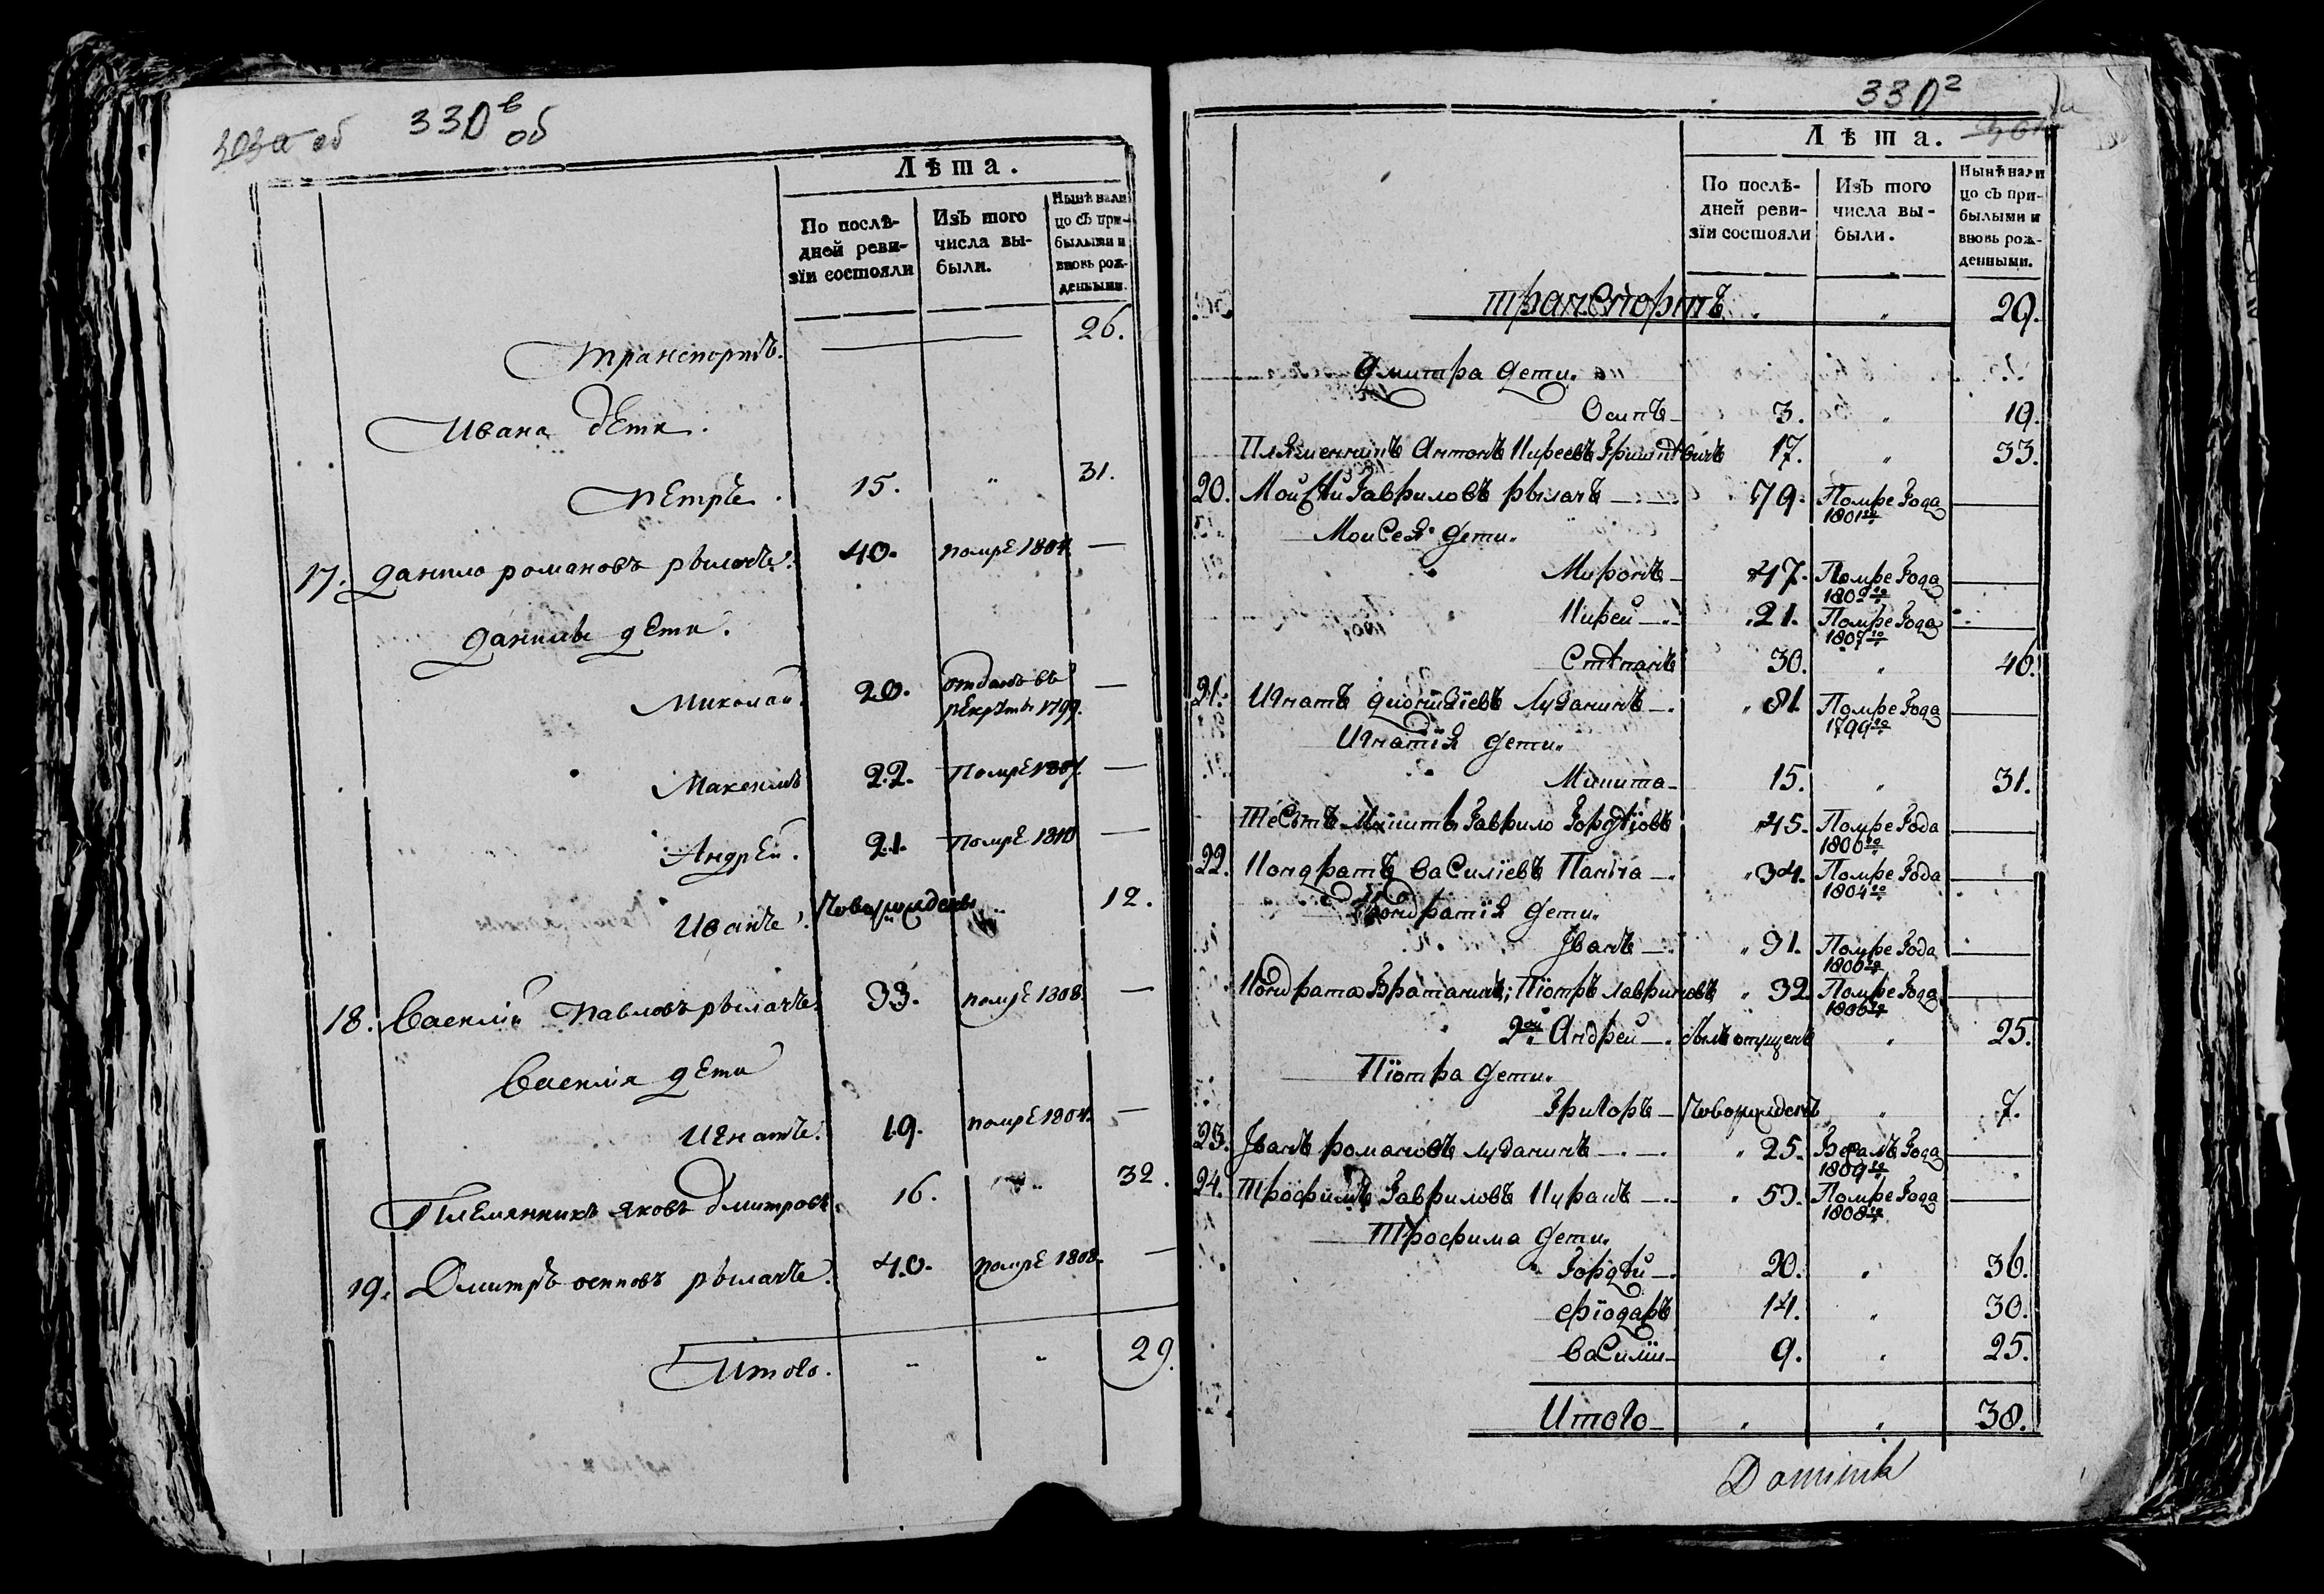 330в об
Лѣта.
По послѣ- дней реви- зїи состояли
Изъ того числа вы- были.
Нынѣ нали цо съ при- былыми и вновь рож- денными.
транспортъ. 26.
Ивана дети.
Петръ. 15. " 31.
17. Данило романовъ рылачъ. 40. помре 1804. —
Данилы дети.
Миколай. 20. отданъ въ рекруты 1799. —
Максимъ 22. Помре 1807. —
Андрей. 21. Помре 1810 —
Иванъ. Новорожденъ " 12.
18. Василий павловъ рылачъ. 33. помре 1808. —
Василия дети
Игнатъ. 19. помре 1804. —
Племянникъ яковъ дмитровъ. 16. " 32.
19. Дмитръ осиповъ рылачъ. 40. помре 1808. —
Итого. " " 29.
330г
Лѣта.
По послѣ- дней реви- зїи состояли
Изъ того числа вы- были.
Нынѣ нали цо съ при- былыми и вновь рож- денными.
транспортъ . " 29.
Дмитра дети.
Осипъ 3. " 19.
Племенникъ Антонъ Киреевъ 17. " 33.
20. Мойсей Гавриловъ рылачъ 79. Помре Года 1801го —
Моисея дети.
Миронъ 47. Помре Года —
Кирей 21. Помре Года 1807го —
Степанъ 30. " 46.
21. Игнатъ Дионизїевъ Лузанинъ 81. Помре Года 1799го —
Игнатїя дети.
Микита 15. " 31.
Тесть Микиты Гаврило Гордѣїовъ 45. Помре Года 1806го —
22. Кондратъ Василїевъ Панча 34. Помре Года 1804го —
Кондратїя дети.
Іванъ 91. Помре Года 1806го —
Кондрата Братаникъ, Пїотръ лавриновъ 32 Помре Года 1806го —
2ой Андрей былъ опущенъ " 25.
Пїотра дети.
Григоръ Новорожденъ " 7.
23. Іванъ романовъ лузанинъ 25. Бежалъ Года 1809го —
24. Трофимъ Гавриловъ Цыранъ 59. Помре Года 1808го —
Трофима дети.
Гордѣй 20. " 36.
Фїодаръ 14. " 30.
Василїи 9. " 25.
Итого " " 38.
Dominik